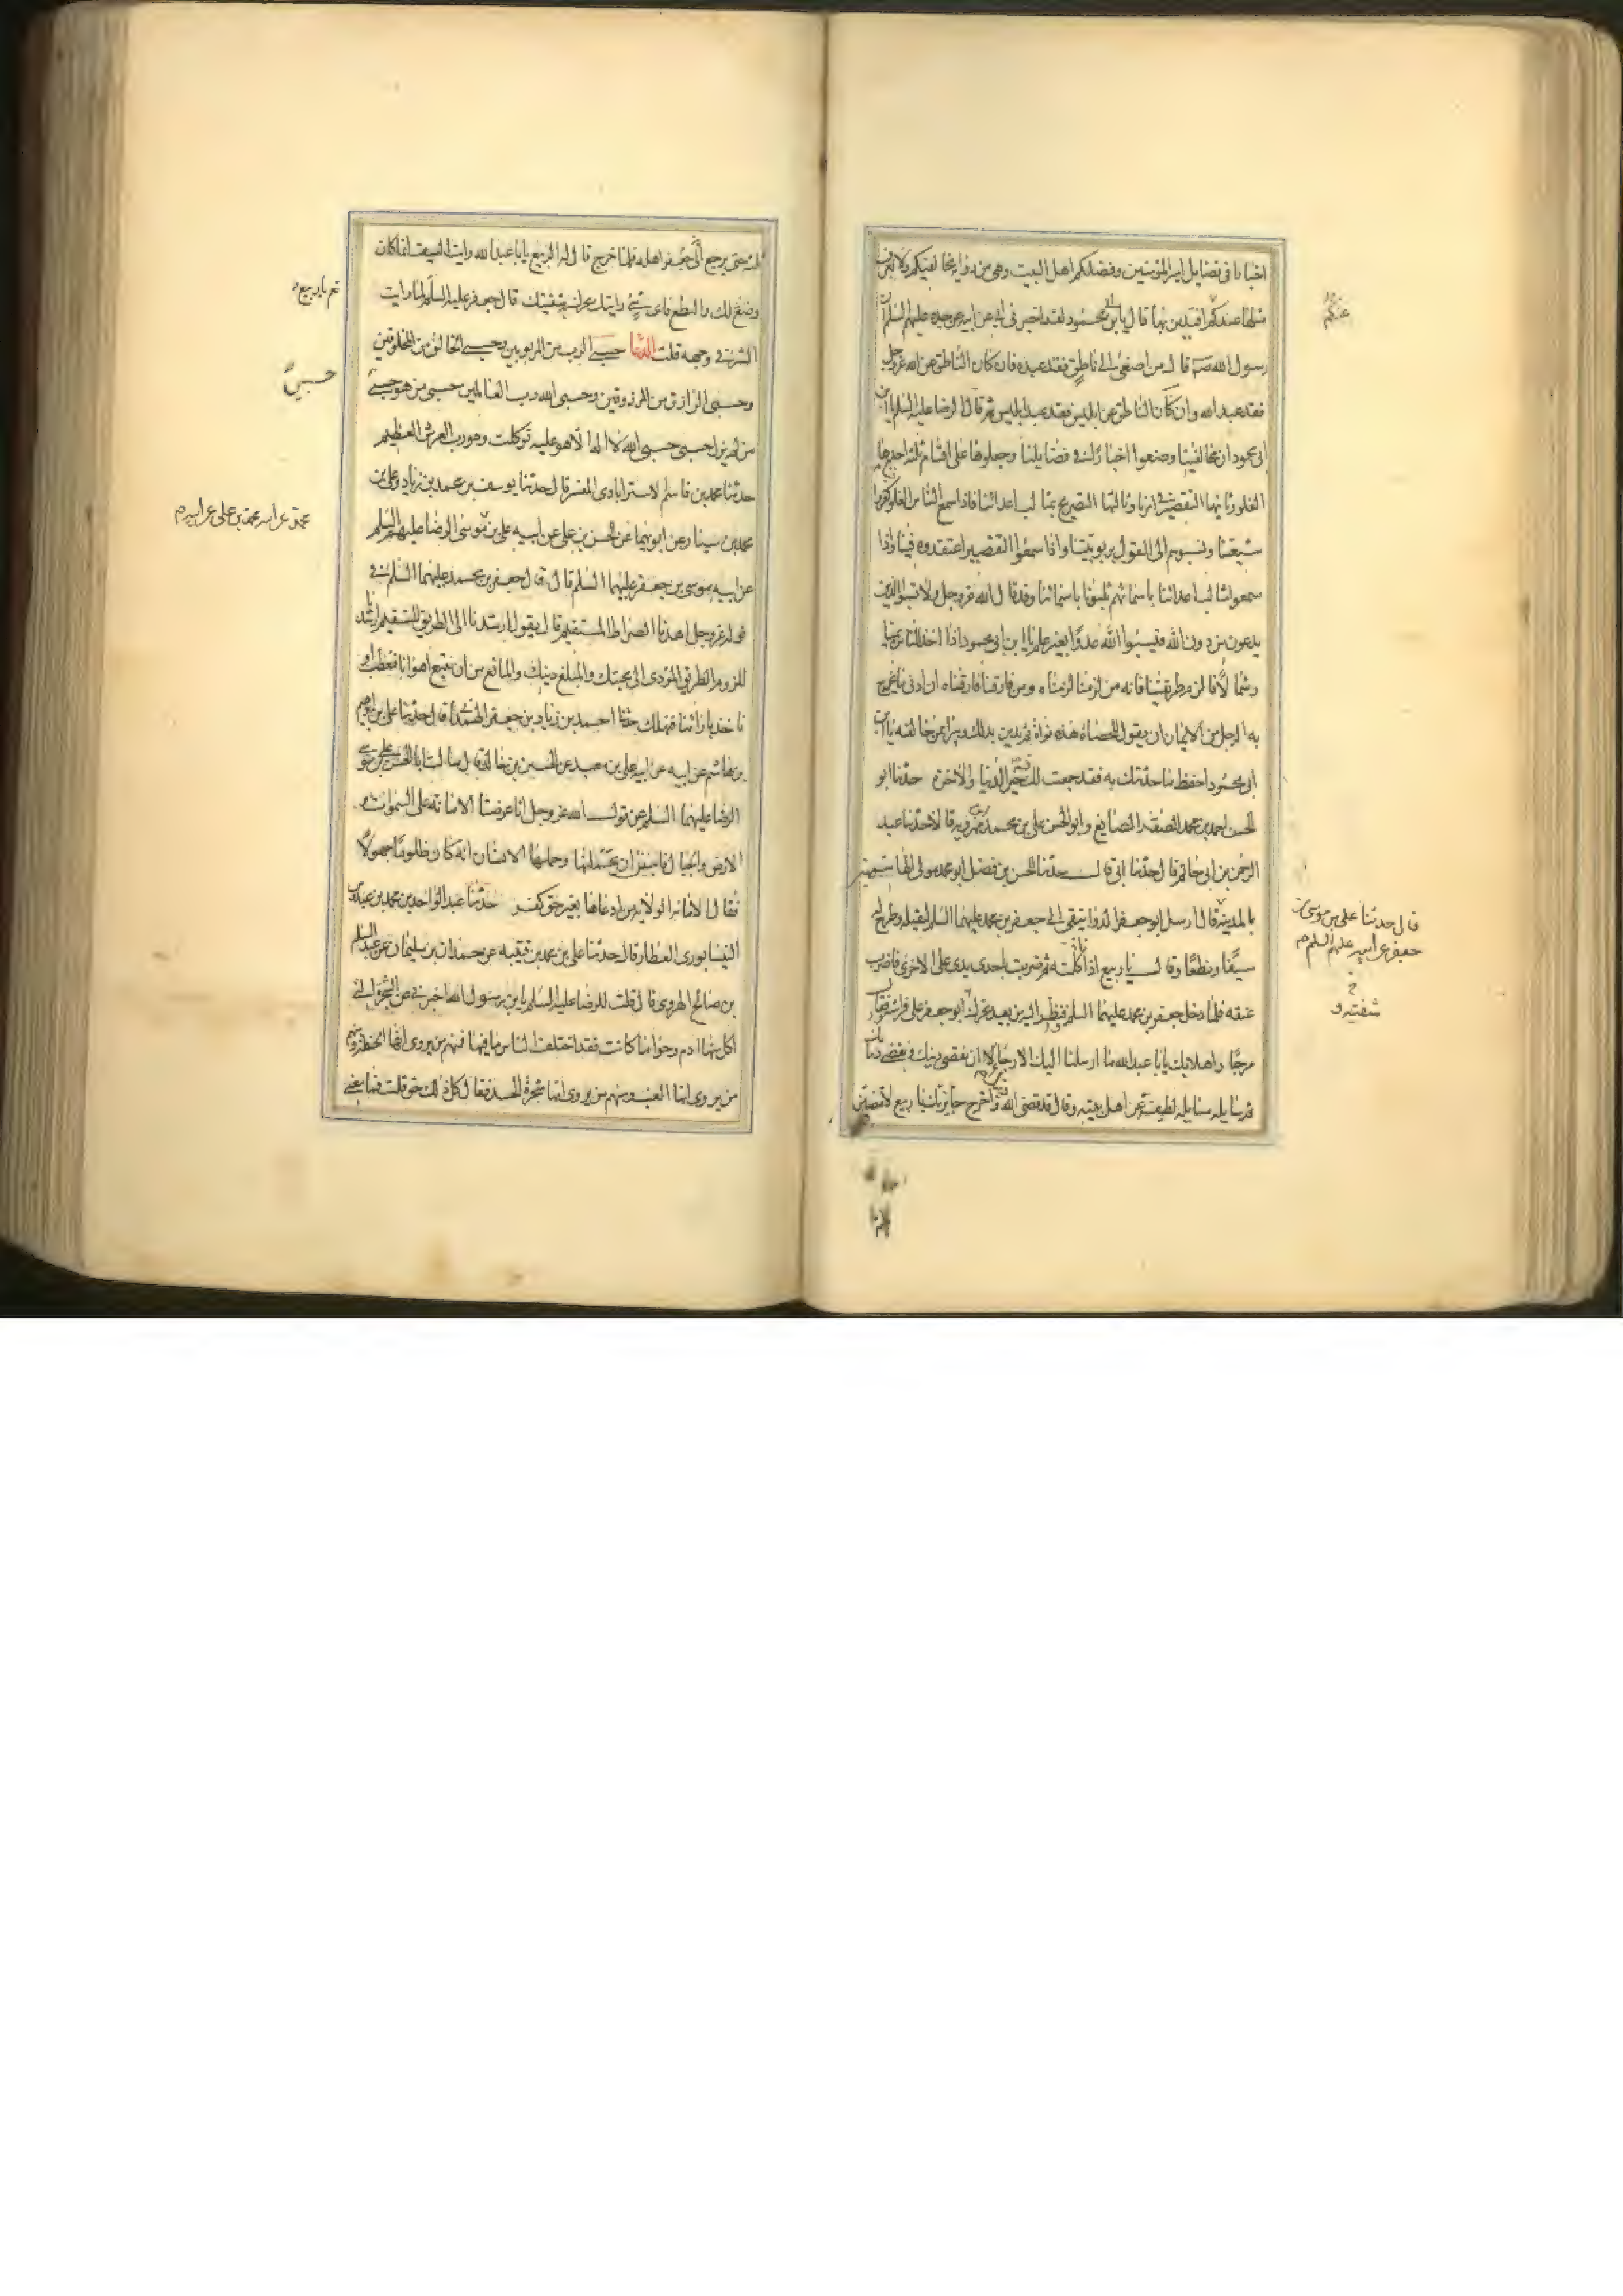 اخبارا فى فضايل امير المؤمنين وفضلكم اهل البيت وهى من رواية مخالفيكم ولا نعرف
مثلها عندكم افندين بها قال يابن ابى محمود لقد اخبرنى ابى عن ابيه عن جده عليهم السلم ان
رسول الله ص قال من اصغى الى ناطق فقد عبده فان كان الناطق عن الله عز وجل
فقد عبد الله وان كان الناطق عن ابليس فقد عبد ابليس ثم قال الرضا عليه السلم يا ابن
ابى محمود ان مخالفينا وضعوا اخبارا فى فضايلنا وجعلوها على اقسام ثلثه احدها
الغلو وثانيها التقصير فى امرنا وثالثها التصريح بمثالب اعدائنا فاذا سمع الناس الغلو كفروا
شيعتنا ونسبوهم الى القول بربوبيتنا واذا سمعوا التقصير اعتقدوه فينا واذا
سمعوا مثالب اعدائنا باسمائهم ثلبونا باسمائنا وقد قال الله عز وجل ولا تسبوا الذين
يدعون من دون الله فيسبوا الله عدوا بغير علم يا ابن ابى محمود اذا اخذ الناس يمينا
وشمالا فالزم طريقتنا فانه من لزمنا لزمناه ومن فارقنا فارقناه ان ادنى ما يخرج
به الرجل من الايمان ان يقول للحصاة هذه نواة ثم يدين بذلك ويبرأ ممن خالفه يا ابن
ابى محمود احفظ ما حدثتك به فقد جمعت لك فيه خير الدنيا والاخرة حدثنا ابو
الحسن احمد بن محمد الصقر الصايغ وابو الحسن على بن محمد مهرويه قالا حدثنا عبد
الرحمن بن ابى حاتم قال حدثنا ابى قال حدثنا الحسن بن فضل ابو محمد مولى الهاشميين
بالمدينة قال ارسل ابو جعفر الدوانيقى الى جعفر بن محمد عليهما السلم ليقتله وطرح له
سيفا ونطعا وقال يا ربيع اذا انا كلمته ثم ضربت باحدى يدى على الاخرى فاضرب
عنقه فلما دخل جعفر بن محمد عليهما السلم فنظر اليه من بعيد تحرك ابو جعفر على فراشه وقال
مرحبا واهلا بك يابا عبد الله ما ارسلنا اليك الا رجاء ان نقضى دينك ونقضى ذمامك
ثم سايله مسايله لطيفة عن اهل بيته وقال قد قضى الله دينك واخرج جايزتك يا ربيع لا تمضين
عنكم
قال حدثنا على بن موسى بن
جعفر عن ابيه عليهم السلم
شفتيه و
ثلثه حتى يرجع جعفر الى اهله فلما خرج قال له الربيع يابا عبد الله رايت السيف انما كان
وضع لك والنطع فاى شئ رايتك تحرك به شفتيك قال جعفر عليه السلم لما رايت
الشر فى وجهه قلت حسبى الرب من المربوبين وحسبى الخالق من المخلوقين
وحسبى الرازق من المرزوقين وحسبى الله رب العالمين حسبى من هو حسبى
من لم يزل حسبى حسبى الله لا اله الا هو عليه توكلت وهو رب العرش العظيم
حدثنا محمد بن قاسم الاسترابادى المفسر قال حدثنا يوسف بن محمد بن زياد وعلى بن
محمد بن سيار عن ابويهما عن الحسن بن على عن ابيه على بن موسى الرضا عليهم السلم
عن ابيه موسى بن جعفر عليهما السلم قال قال جعفر بن محمد عليهما السلم فى
قوله عز وجل اهدنا الصراط المستقيم قال يقول ارشدنا الى الطريق المستقيم ارشدنا
للزوم الطريق المؤدى الى محبتك والمبلغ دينك والمانع من ان نتبع اهوائنا فنعطب او
ناخذ بارائنا فنهلك حدثنا احمد بن زياد بن جعفر الهمدانى قال حدثنا على بن ابراهيم
بن هاشم عن ابيه عن على بن معبد عن الحسين بن خالد قال سالت ابا الحسن على بن موسى
الرضا عليهما السلم عن قول الله عز وجل انا عرضنا الامانة على السموات و
الارض والجبال فابين ان يحملنها وحملها الانسان انه كان ظلوما جهولا
فقال الامانه الولايه من ادعاها بغير حق كفر حدثنا عبد الواحد بن محمد بن عبدوس
النيسابورى العطار قال حدثنا على بن محمد بن قتيبه عن حمدان بن سليمان عن عبد السلم
بن صالح الهروى قال قلت للرضا عليه السلم يابن رسول الله اخبرنى عن الشجرة التى
اكل منها ادم وحوا ما كانت فقد اختلف الناس فيها فمنهم من يروى انها الحنطة ومنهم
من يروى انها العنب ومنهم من يروى انها شجرة الحسد فقال كل ذلك حق قلت فما معنى
نعم يا ربيع
حسبى
محمد عن ابيه محمد بن على عن ابيه